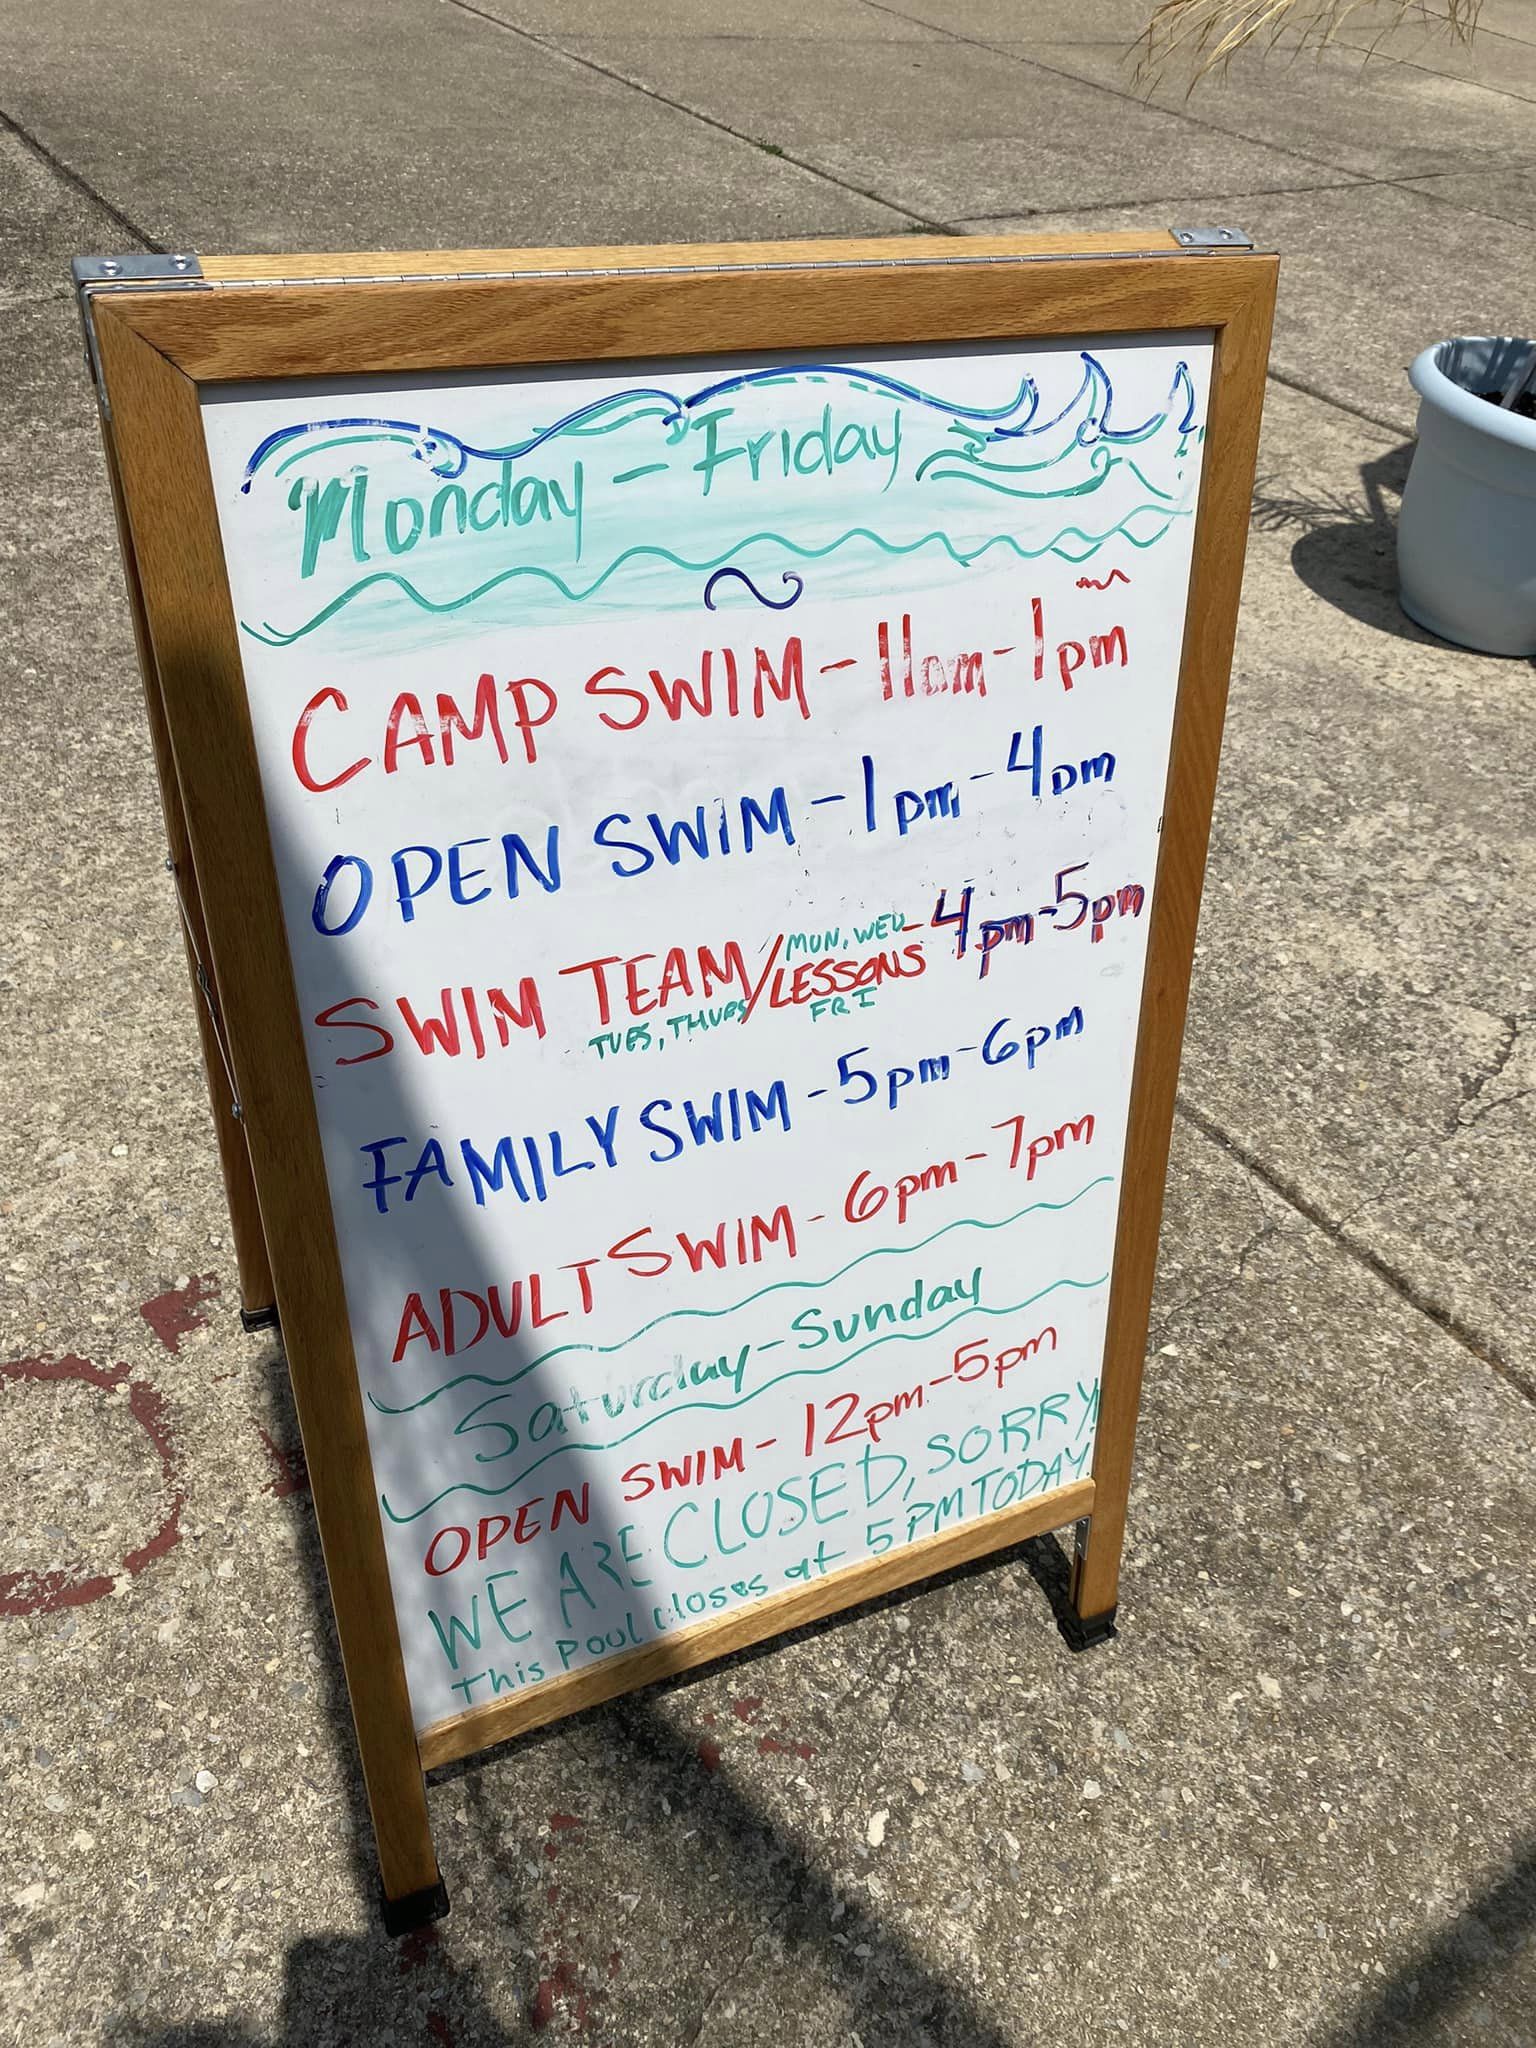 Monday - Friday
CAMP SWIM - 11am - 1pm
OPEN SWIM - 1pm - 4pm
MON, WED
SWIM TEAM/LESSONS - 4pm - 5pm
TUES, THURS FRI
FAMILY SWIM - 5pm - 6pm
ADULT SWIM - 6pm - 7pm
Saturday - Sunday
OPEN SWIM - 12pm - 5pm
WE ARE CLOSED, SORRY!
This Pool Closes at 5PM TODAY!